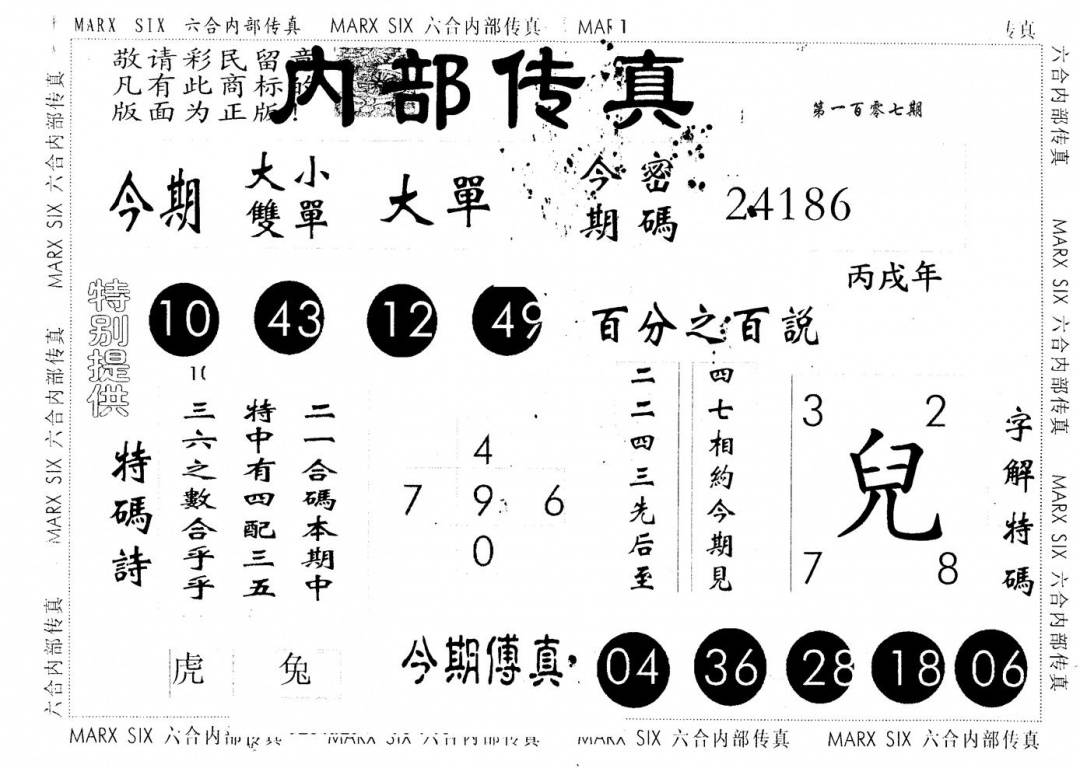 MARX SIX 六合内部传真 MARX SIX 六合内部传真 MAR 1 传真
敬请彩民留意
凡有此商标的
版面为正版!
内部传真
第一百零七期
今期
大小
雙單
大單
今密
期碼
24186
丙戌年
特别提供
10 43 12 49
百分之百説
10
特碼詩
三六之數合乎乎
特中有四配三五
二一合碼本期中
4
7 9 6
0
二二四三先后至
四七相約今期見
3 2
兒
7 8
字解特碼
虎 兔
今期傳真
04 36 28 18 06
MARX SIX 六合内部传真 MARX SIX 六合内部传真 MARX SIX 六合内部传真 MARX SIX 六合内部传真
六合内部传真 MARX SIX 六合内部传真 MARX SIX 六合内部传真 MARX SIX 六合内部传真
六合内部传真 MARX SIX 六合内部传真 MARX SIX 六合内部传真